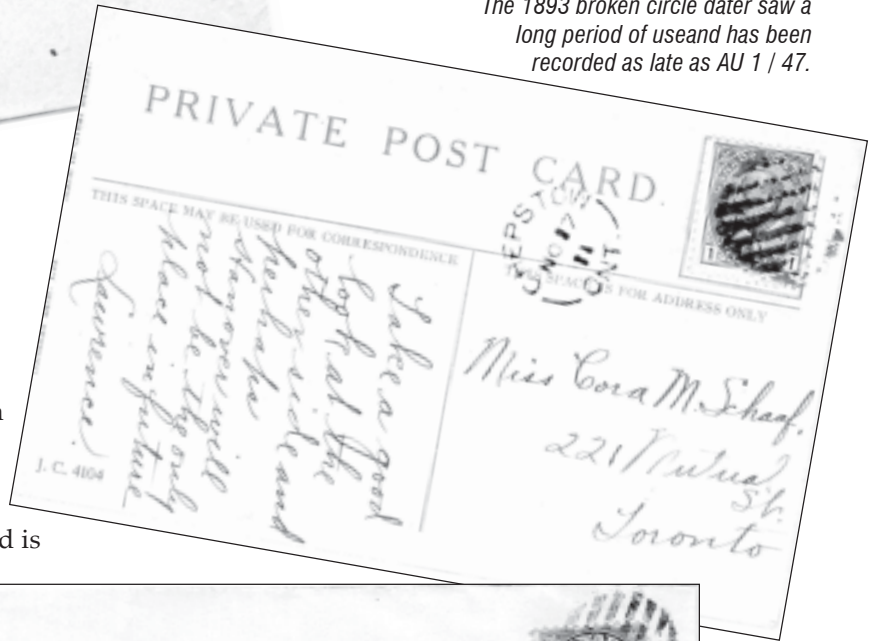 The 1893 broken circle dater saw a
long period of useand has been
recorded as late as AU 1 / 47.
PRIVATE POST CARD.
THIS SPACE MAY BE USED FOR CORRESPONDENCE
THIS SPACE IS FOR ADDRESS ONLY
EPSTOWN
NO 17
11
ONT.
1 1
Take a good
look at the
other side and
perhaps
Hanover will
not be the only
place in future
Lawrence.
Miss Cora M. Schaaf.
221 Mutual
St.
Toronto
J. C. 4104
d is